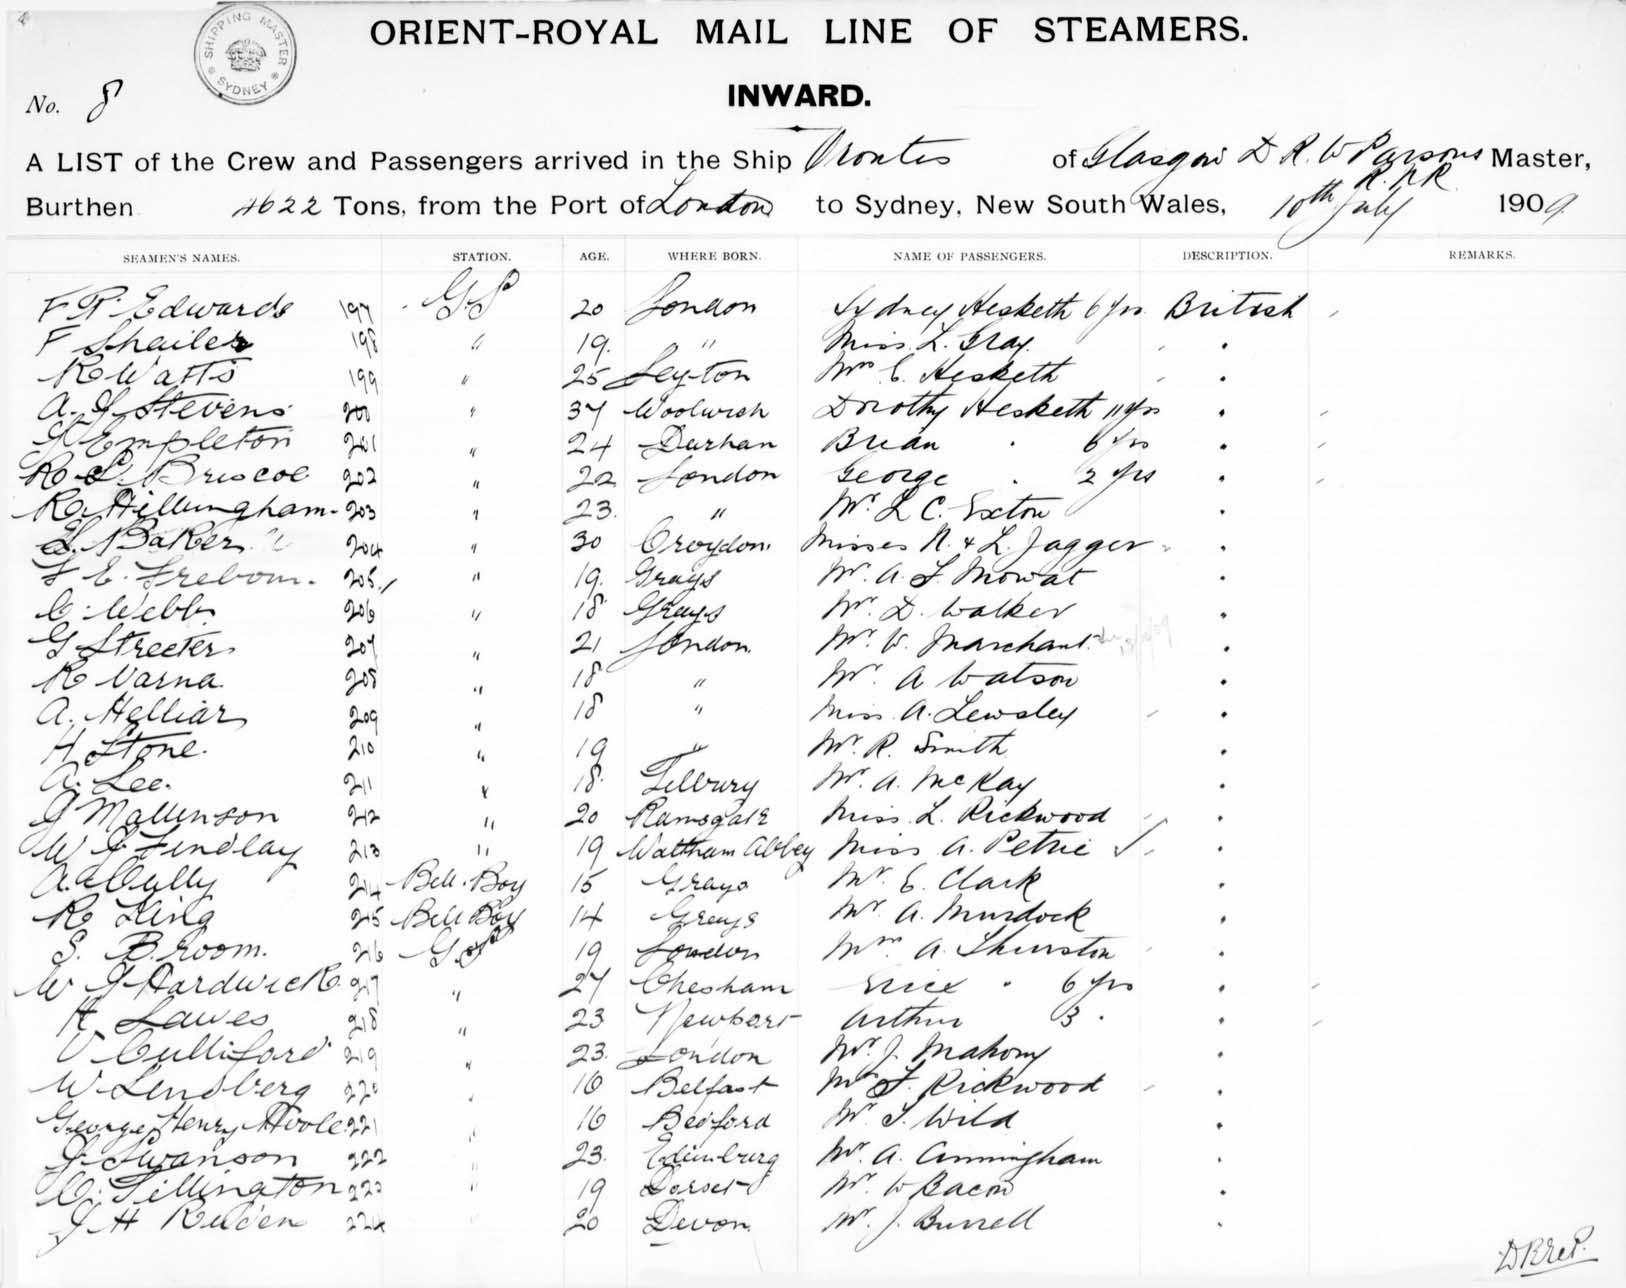 SHIPPING MASTER SYDNEY
ORIENT-ROYAL MAIL LINE OF STEAMERS.
No. 8
INWARD.
A LIST of the Crew and Passengers arrived in the Ship Orontes of Glasgow D R. W Parsons Master,
R.N.R
Burthen 4622 Tons, from the Port of London to Sydney, New South Wales, 10th July 1909
SEAMEN'S NAMES. STATION. AGE. WHERE BORN. NAME OF PASSENGERS. DESCRIPTION. REMARKS.
F R. Edwards 197 G.S 20 London Sydney Hesketh 6 yrs. British
F Shailer 198 " 19. " Miss. L. Gray.
R Watts 199 " 25 Leyton Mrs C. Hesketh
A. J Stevens 200 " 37 Woolwich Dorothy Hesketh 11 yrs
J Empleton 201 " 24 Durhan Brian " 6 yrs
R. S. Briscoe 202 " 22 London George " 2 yrs
R. Hillingham. 203 " 23. " Mr. L C. Exton
S. Baker. 204 " 30 Croydon. Misses N. & L. Jagger
F E. Frebom. 205. " 19. Grays Mr. A. F. Mowat
C. Webb. 206 " 18 Grays Mr. D. Walker
G Streeter. 207 " 21 London. Mr. W. Marchant.
R Varna. 208 " 18 " Mr. A Watson
A. Helliar 209 " 18 " Miss. A. Lewsley
H Stone. 210 " 19 " Mr. R. Smith
A. Lee. 211 " 18 Tilbury Mr. A. McKay
J Mallinson 212 " 20 Ramsgate Miss. L. Rickwood
W J Findlay 213 " 19 Waltham Abbey Miss A. Petrie
A. Cully 214 Bell. Boy 15 Grays Mr. E. Clark
R King 215 Bell Boy 14 Grays Mr. A. Murdock
S. Broom. 216 G.S 19 London Mrs A. Thurston
W J Hardwick 217 " 27 Chesham Eric " 6 yrs
H Lawes 218 " 23 Newport Arthur 3 "
V Culliford 219 " 23. London Mr. J. Mahony
W Lindberg 220 " 16 Belfast F. Rickwood
George Henry Hoole. 221 " 16 Bedford Mr. T. Wild
J. Swanson 222 " 23. Edinburg Mr. A. Cunningham
C. Tillington 223 " 19 Dorset Mr. W Bacon
J H 224 20 Devon. Mr. J. Burrell